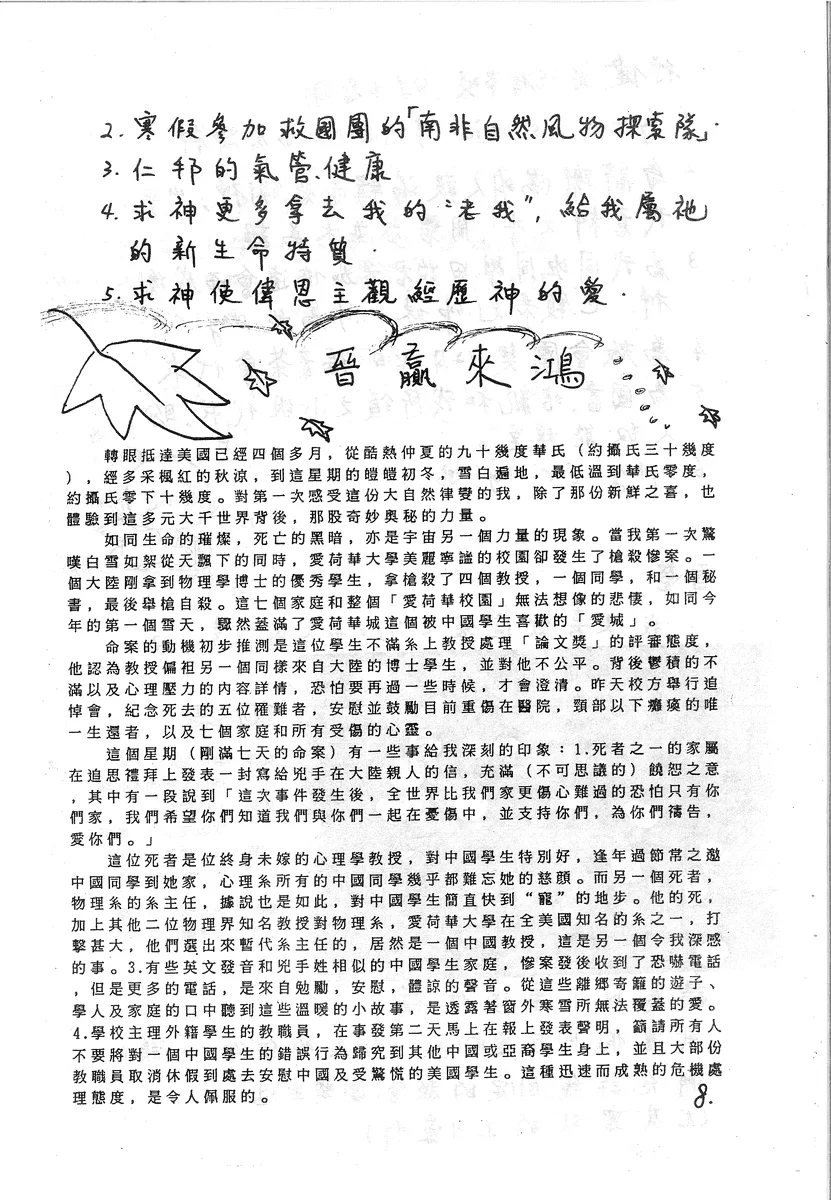 2. 寒假參加救國團的「南非自然風物探索隊」.
3. 仁邦的氣管、健康
4. 求神更多拿去我的“老我”, 給我屬祂
的新生命特質.
5. 求神使偉恩主觀經歷神的愛.
晉贏來鴻
轉眼抵達美國已經四個多月，從酷熱仲夏的九十幾度華氏（約攝氏三十幾度
），經多采楓紅的秋涼，到這星期的皚皚初冬，雪白遍地，最低溫到華氏零度，
約攝氏零下十幾度。對第一次感受這份大自然律變的我，除了那份新鮮之喜，也
體驗到這多元大千世界背後，那股奇妙奧秘的力量。
如同生命的璀燦，死亡的黑暗，亦是宇宙另一個力量的現象。當我第一次驚
嘆白雪如絮從天飄下的同時，愛荷華大學美麗寧謐的校園卻發生了槍殺慘案。一
個大陸剛拿到物理學博士的優秀學生，拿槍殺了四個教授，一個同學，和一個秘
書，最後舉槍自殺。這七個家庭和整個「愛荷華校園」無法想像的悲悽，如同今
年的第一個雪天，驟然蓋滿了愛荷華城這個被中國學生喜歡的「愛城」。
命案的動機初步推測是這位學生不滿系上教授處理「論文獎」的評審態度，
他認為教授偏袒另一個同樣來自大陸的博士學生，並對他不公平。背後鬱積的不
滿以及心理壓力的內容詳情，恐怕要再過一些時候，才會澄清。昨天校方舉行追
悼會，紀念死去的五位罹難者，安慰並鼓勵目前重傷在醫院，頸部以下癱瘓的唯
一生還者，以及七個家庭和所有受傷的心靈。
這個星期（剛滿七天的命案）有一些事給我深刻的印象：1.死者之一的家屬
在追思禮拜上發表一封寫給兇手在大陸親人的信，充滿（不可思議的）饒恕之意
，其中有一段說到「這次事件發生後，全世界比我們家更傷心難過的恐怕只有你
們家，我們希望你們知道我們與你們一起在憂傷中，並支持你們，為你們禱告，
愛你們。」
這位死者是位終身未嫁的心理學教授，對中國學生特別好，逢年過節常之邀
中國同學到她家，心理系所有的中國同學幾乎都難忘她的慈顏。而另一個死者，
物理系的系主任，據說也是如此，對中國學生簡直快到“寵”的地步。他的死，
加上其他二位物理界知名教授對物理系，愛荷華大學在全美國知名的系之一，打
擊甚大，他們選出來暫代系主任的，居然是一個中國教授，這是另一個令我深感
的事。3.有些英文發音和兇手姓相似的中國學生家庭，慘案發後收到了恐嚇電話
，但是更多的電話，是來自勉勵，安慰，體諒的聲音。從這些離鄉寄籬的遊子、
學人及家庭的口中聽到這些溫暖的小故事，是透露著窗外寒雪所無法覆蓋的愛。
4.學校主理外籍學生的教職員，在事發第二天馬上在報上發表聲明，籲請所有人
不要將對一個中國學生的錯誤行為歸究到其他中國或亞裔學生身上，並且大部份
教職員取消休假到處去安慰中國及受驚慌的美國學生。這種迅速而成熟的危機處
理態度，是令人佩服的。
8.